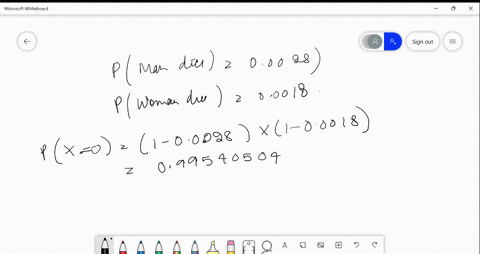 Microsoft Whiteboard
Sign out
P(Man dies) = 0.0028)
P(Woman dies) = 0.0018
P(X=0) = (1-0.0028) X (1-0.0018)
= 0.99540504
A